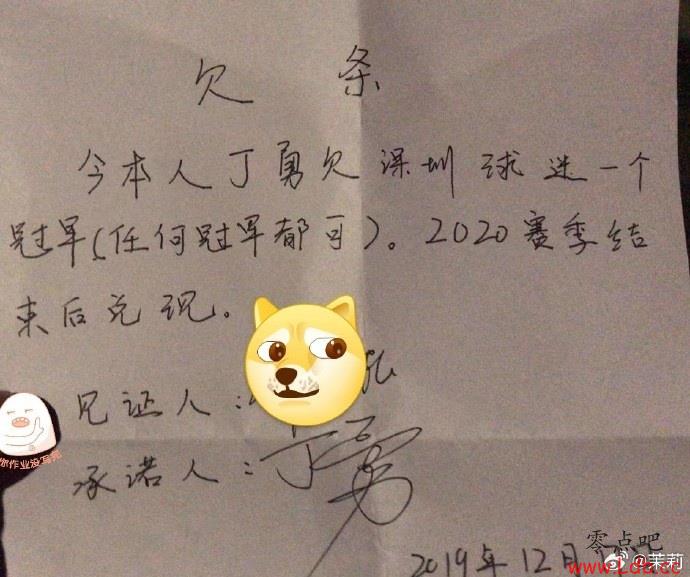 欠条
今本人丁勇欠深圳球迷一个
冠军(任何冠军都可)。2020赛季结
束后兑现。
见证人:
承诺人:丁勇
2019年12月
你作业没写完
零点吧
@茉莉